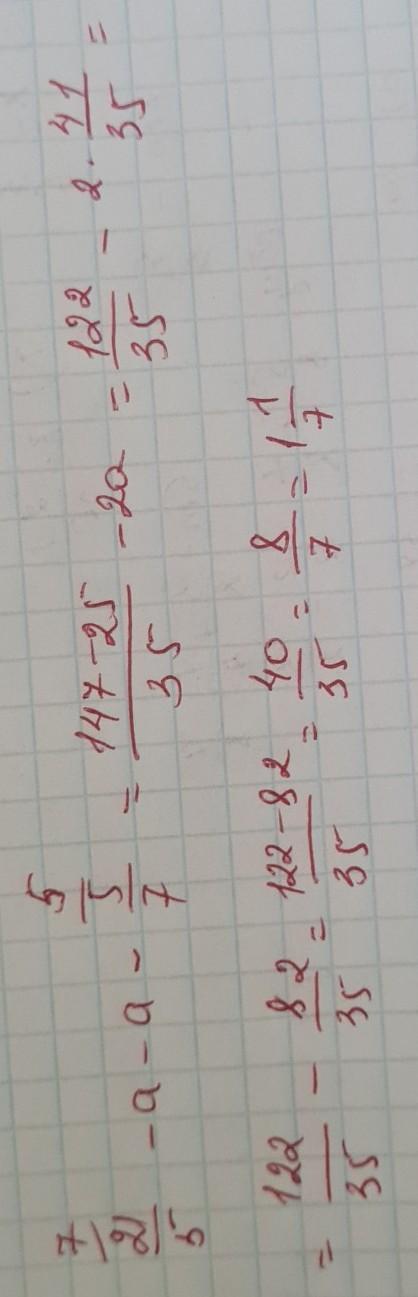 7/ 21/5 - a - a - 5/ 5/7 = (147-25)/35 - 2a = 122/35 - 2 · 41/35 =
= 122/35 - 82/35 = (122-82)/35 = 40/35 = 8/7 = 1 1/7